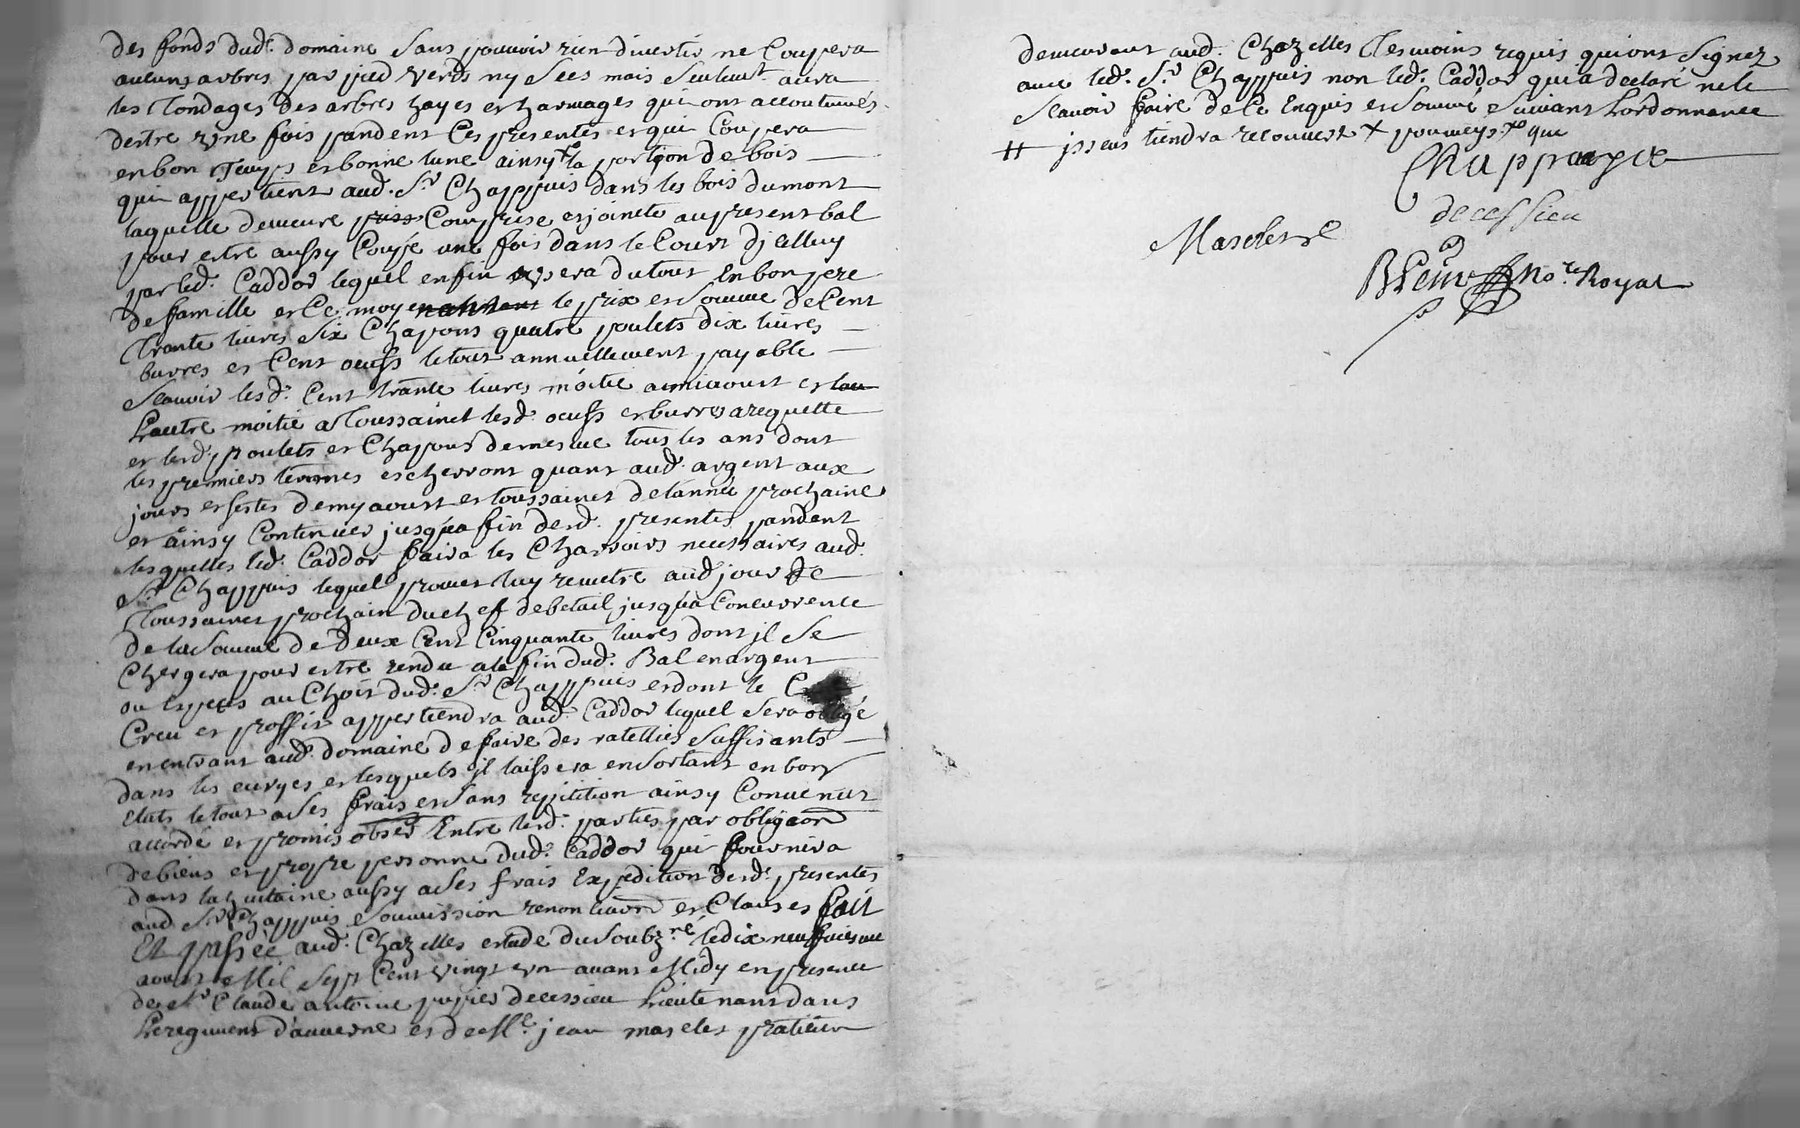 des fonds dud. domaine sans pouvoir rien divertir ne Coupera
aucuns arbres par pied verds ny secs mais seulemt. aura
les Tondages des arbres hayes et qui ont accoutumés
destre vne fois pandent Ces presentes et qui Coupera
en bon Temps et bonne lune ainsy la portion de bois
qui appertient aud. Sr. Chappuis dans les bois dumont
laquelle demeure Comprise et jointe au present bal
pour estre aussy Coupé une fois dans le Cours dj celluy
par led. Caddor lequel enfin vsera du tout en bon pere
de famille et Ce moyenahnant le prix et somme de Cent
Trante livres six Chapons quatre poulets dix livres
burres et Cent oeufs le tout annuellement payable
scauoir lesd. Cent trante livres moitie a miaoust et
Lautre moitie a Toussainct lesd. oeufs et burres a requette
et lesd. poulets et Chapons de mesme tous les ans dont
les premiers termes escherront quant aud. argent aux
jours et festes de my aoust et toussainct de lannée prochaine
et ainsy Continuer jusqua fin desd. presentes pandent
lesquelles led. Caddor faira les Charroirs necessaires aud.
Sr. Chappuis lequel promet luy remetre aud. jour de
Toussainct prochain du chef de betail jusqua Concurrence
de la somme de deux Cent Cinquante livres dont jl se
Chergera pour estre rendu a la fin dud. Bal en argent
ou especes au Choix dud. Sr. Chappuis et dont le
Creu et proffit appertiendra aud. Caddor lequel sera obligé
en entrant aud. domaine de faire des ratelliés suffisants
dans les ecuryes et lesquels jl laissera en sortant en bon
etats le tout a ses frais et sans repetition ainsy Conuenut
accordé et promis obser Entre lesd. parties par obligaon
de biens et propre personne dud. Caddor qui fournira
dans la huitaine aussy a ses frais Expedition desd. presentes
aud. Sr. Chappuis soumission renontiaon et Clauses fait
Et passée aud. Chazelles estude du soubzné. le dix neufuiesme
aoust Mil sept Cent vingt vn auant Midy en presence
de Mr. Claude antoine pupies decessieu Lieutenant dans
Le regiment d'auuerne et de Me. jean mascles praticien
demeurant aud. Chazelles Tesmoins requis qui ont signez
auec led. Sr. Chappuis non led. Caddor qui a declaré ne le
scauoir faire de Ce Enquis et sommé suiuant Lordonnance
jsseus tiendra que
Chappuys
decessieu
Mascles
Nore. Royal